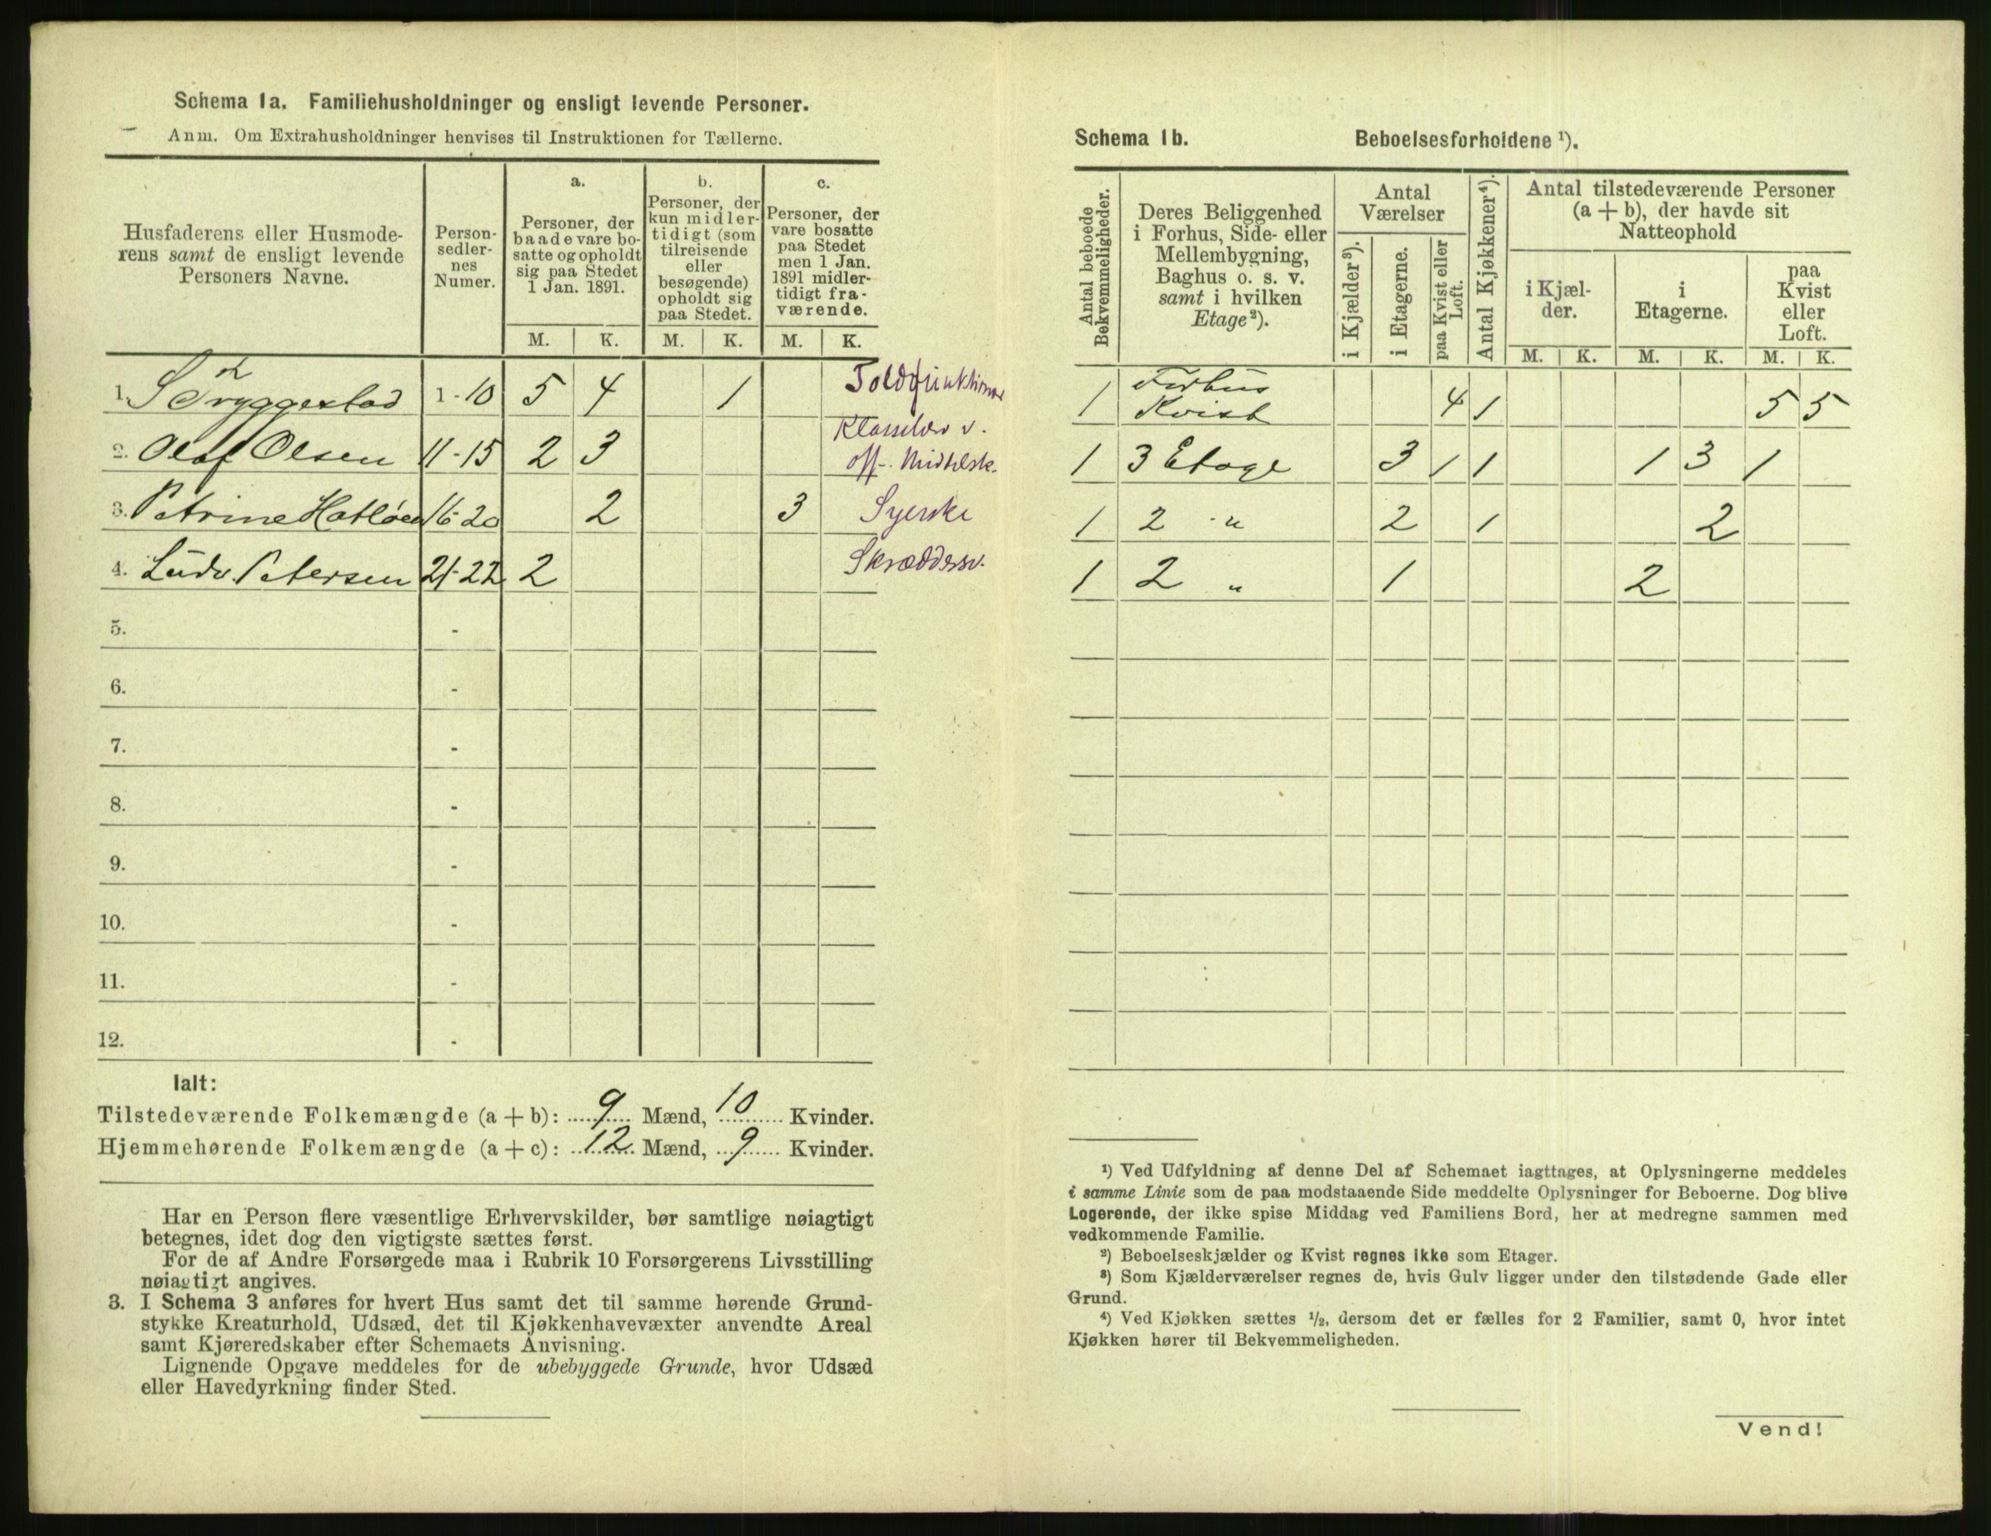 Schema 1a. Familiehusholdninger og ensligt levende Personer.
Anm. Om Extrahusholdninger henvises til Instruktionen for Tællerne.
Husfaderens eller Husmode-
rens samt de ensligt levende
Personers Navne.
Person-
sedler-
nes
Numer.
a.
Personer, der
baade vare bo-
satte og opholdt
sig paa Stedet
1 Jan. 1891.
b.
Personer, der
kun midler-
tidigt (som
tilreisende
eller
besøgende)
opholdt sig
paa Stedet.
c.
Personer, der
vare bosatte
paa Stedet
men 1 Jan.
1891 midler-
tidigt fra-
værende.
M. K. M. K. M. K.
1. S Tryggestad 1-10 5 4 1
2. Olaf Olsen 11-15 2 3 Klasselær v.
off. Middelsk.
3. Petrine Hatløen 16-20 2 3 Syerske
4. Ludv Petersen 21-22 2 Skræddersv.
5. -
6. -
7. -
8. -
9. -
10. -
11. -
12. -
Ialt:
Tilstedeværende Folkemængde (a + b): 9 Mænd, 10 Kvinder.
Hjemmehørende Folkemængde (a + c): 12 Mænd, 9 Kvinder.
Har en Person flere væsentlige Erhvervskilder, bør samtlige nøiagtigt
betegnes, idet dog den vigtigste sættes først.
For de af Andre Forsørgede maa i Rubrik 10 Forsørgerens Livsstilling
nøiagtigt angives.
3. I Schema 3 anføres for hvert Hus samt det til samme hørende Grund-
stykke Kreaturhold, Udsæd, det til Kjøkkenhavevæxter anvendte Areal
samt Kjøreredskaber efter Schemaets Anvisning.
Lignende Opgave meddeles for de ubebyggede Grunde, hvor Udsæd
eller Havedyrkning finder Sted.
Schema 1b. Beboelsesforholdene ¹).
Antal beboede
Bekvemmeligheder.
Deres Beliggenhed
i Forhus, Side- eller
Mellembygning,
Baghus o. s. v.
samt i hvilken
Etage²).
Antal
Værelser
i Kjælder³).
i Etagerne.
paa Kvist eller
Loft.
Antal Kjøkkener⁴).
Antal tilstedeværende Personer
(a + b), der havde sit
Natteophold
i Kjæl-
der.
i
Etagerne.
paa
Kvist
eller
Loft.
M. K. M. K. M. K.
1 Forhus
Kvist 4 1 5 5
1 3 Etage 3 1 1 1 3 1
1 2 " 2 1 2
1 2 " 1 2
¹) Ved Udfyldning af denne Del af Schemaet iagttages, at Oplysningerne meddeles
i samme Linie som de paa modstaaende Side meddelte Oplysninger for Beboerne. Dog blive
Logerende, der ikke spise Middag ved Familiens Bord, her at medregne sammen med
vedkommende Familie.
²) Beboelseskjælder og Kvist regnes ikke som Etager.
³) Som Kjælderværelser regnes de, hvis Gulv ligger under den tilstødende Gade eller
Grund.
⁴) Ved Kjøkken sættes ½, dersom det er fælles for 2 Familier, samt 0, hvor intet
Kjøkken hører til Bekvemmeligheden.
Vend!